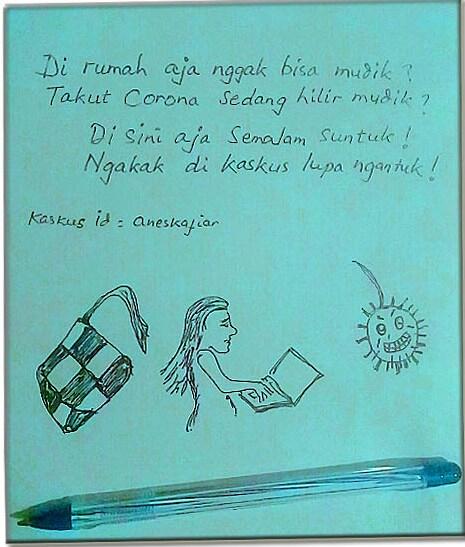 Di rumah aja nggak bisa mudik?
Takut Corona sedang hilir mudik?
Di sini aja semalam suntuk!
Ngakak di kaskus lupa ngantuk!
Kaskus id = aneskafiar